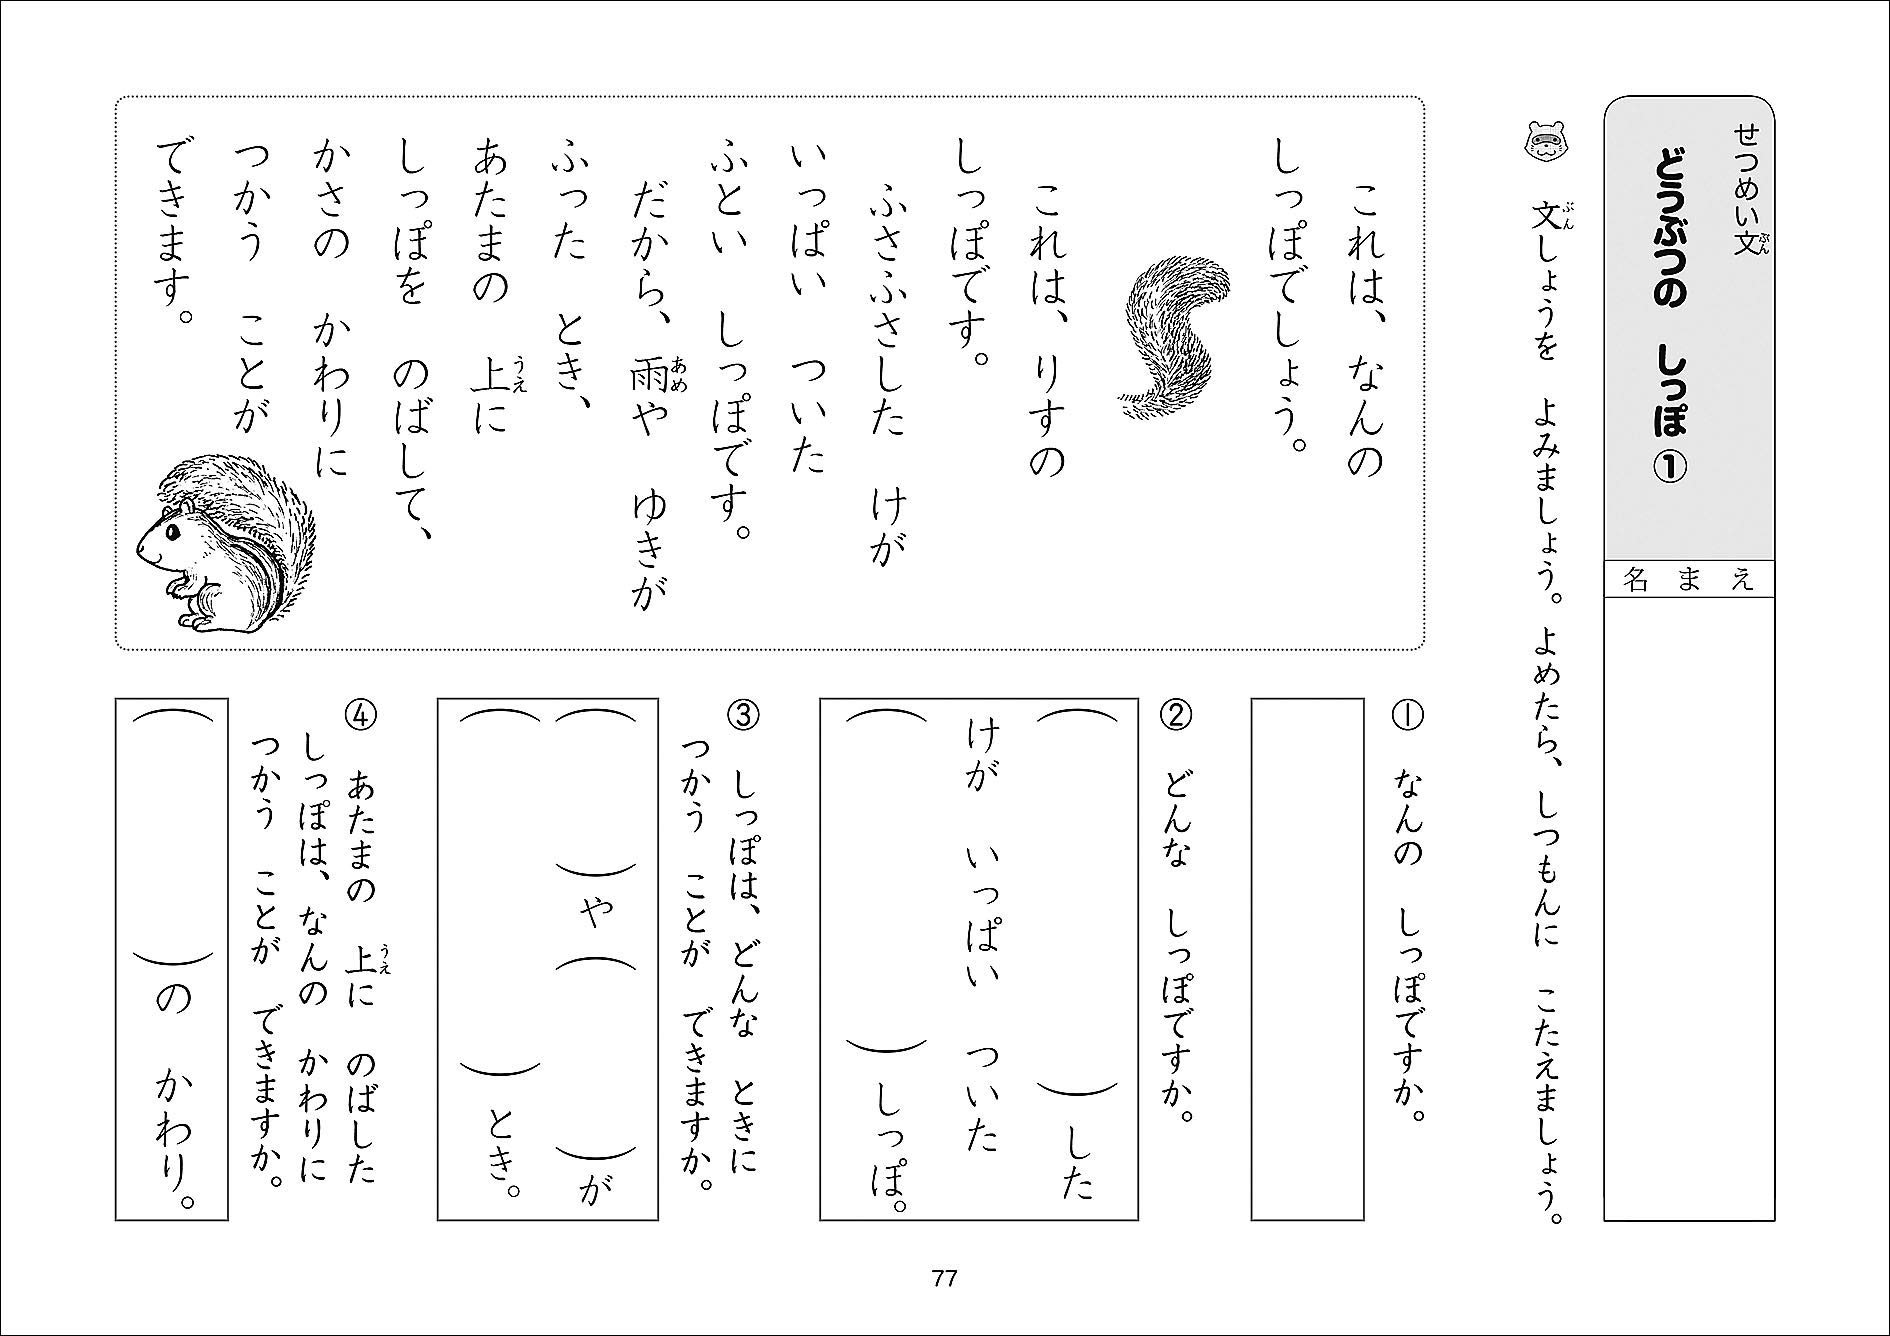 せつめい文
どうぶつの　しっぽ①
名まえ
文しょうを　よみましょう。よめたら、しつもんに　こたえましょう。
これは、なんの
しっぽでしょう。
これは、りすの
しっぽです。
ふさふさした　けが
いっぱい　ついた
ふとい　しっぽです。
だから、雨や　ゆきが
ふった　とき、
あたまの　上に
しっぽを　のばして、
かさの　かわりに
つかう　ことが
できます。
①　なんの　しっぽですか。
②　どんな　しっぽですか。
（　　　）した
けが　いっぱい　ついた
（　　　）しっぽ。
③　しっぽは、どんな　ときに
つかう　ことが　できますか。
（　　　）や（　　　）が
（　　　）とき。
④　あたまの　上に　のばした
しっぽは、なんの　かわりに
つかう　ことが　できますか。
（　　　）の　かわり。
77